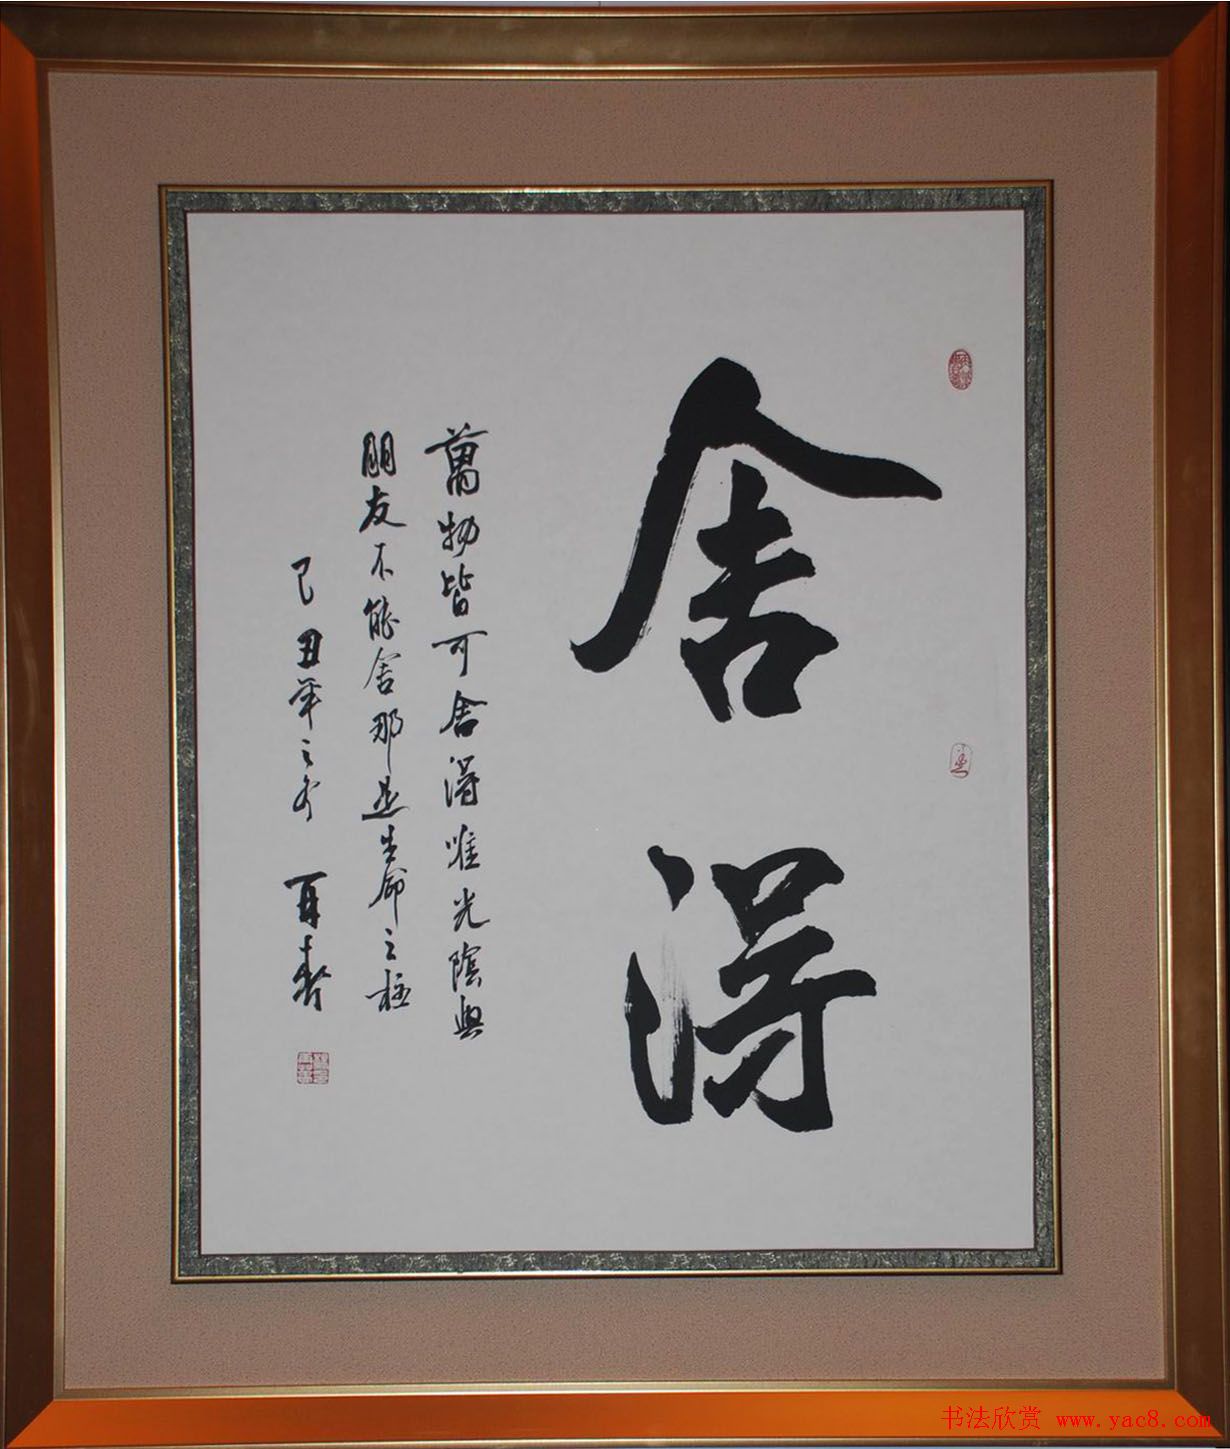 舍得
萬物皆可舍得唯光陰與
朋友不能舍那是生命之極
己丑年之冬
书法欣赏 www.yac8.com